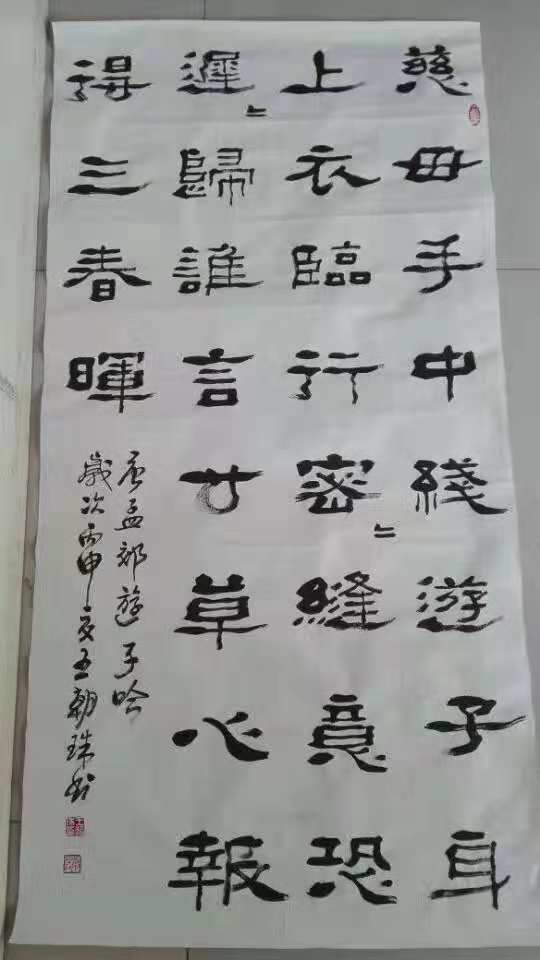 慈母手中綫游子身
上衣臨行密〻縫意恐
遲〻歸誰言寸草心報
得三春暉
唐孟郊遊子吟
歲次丙申夏王朝珠书